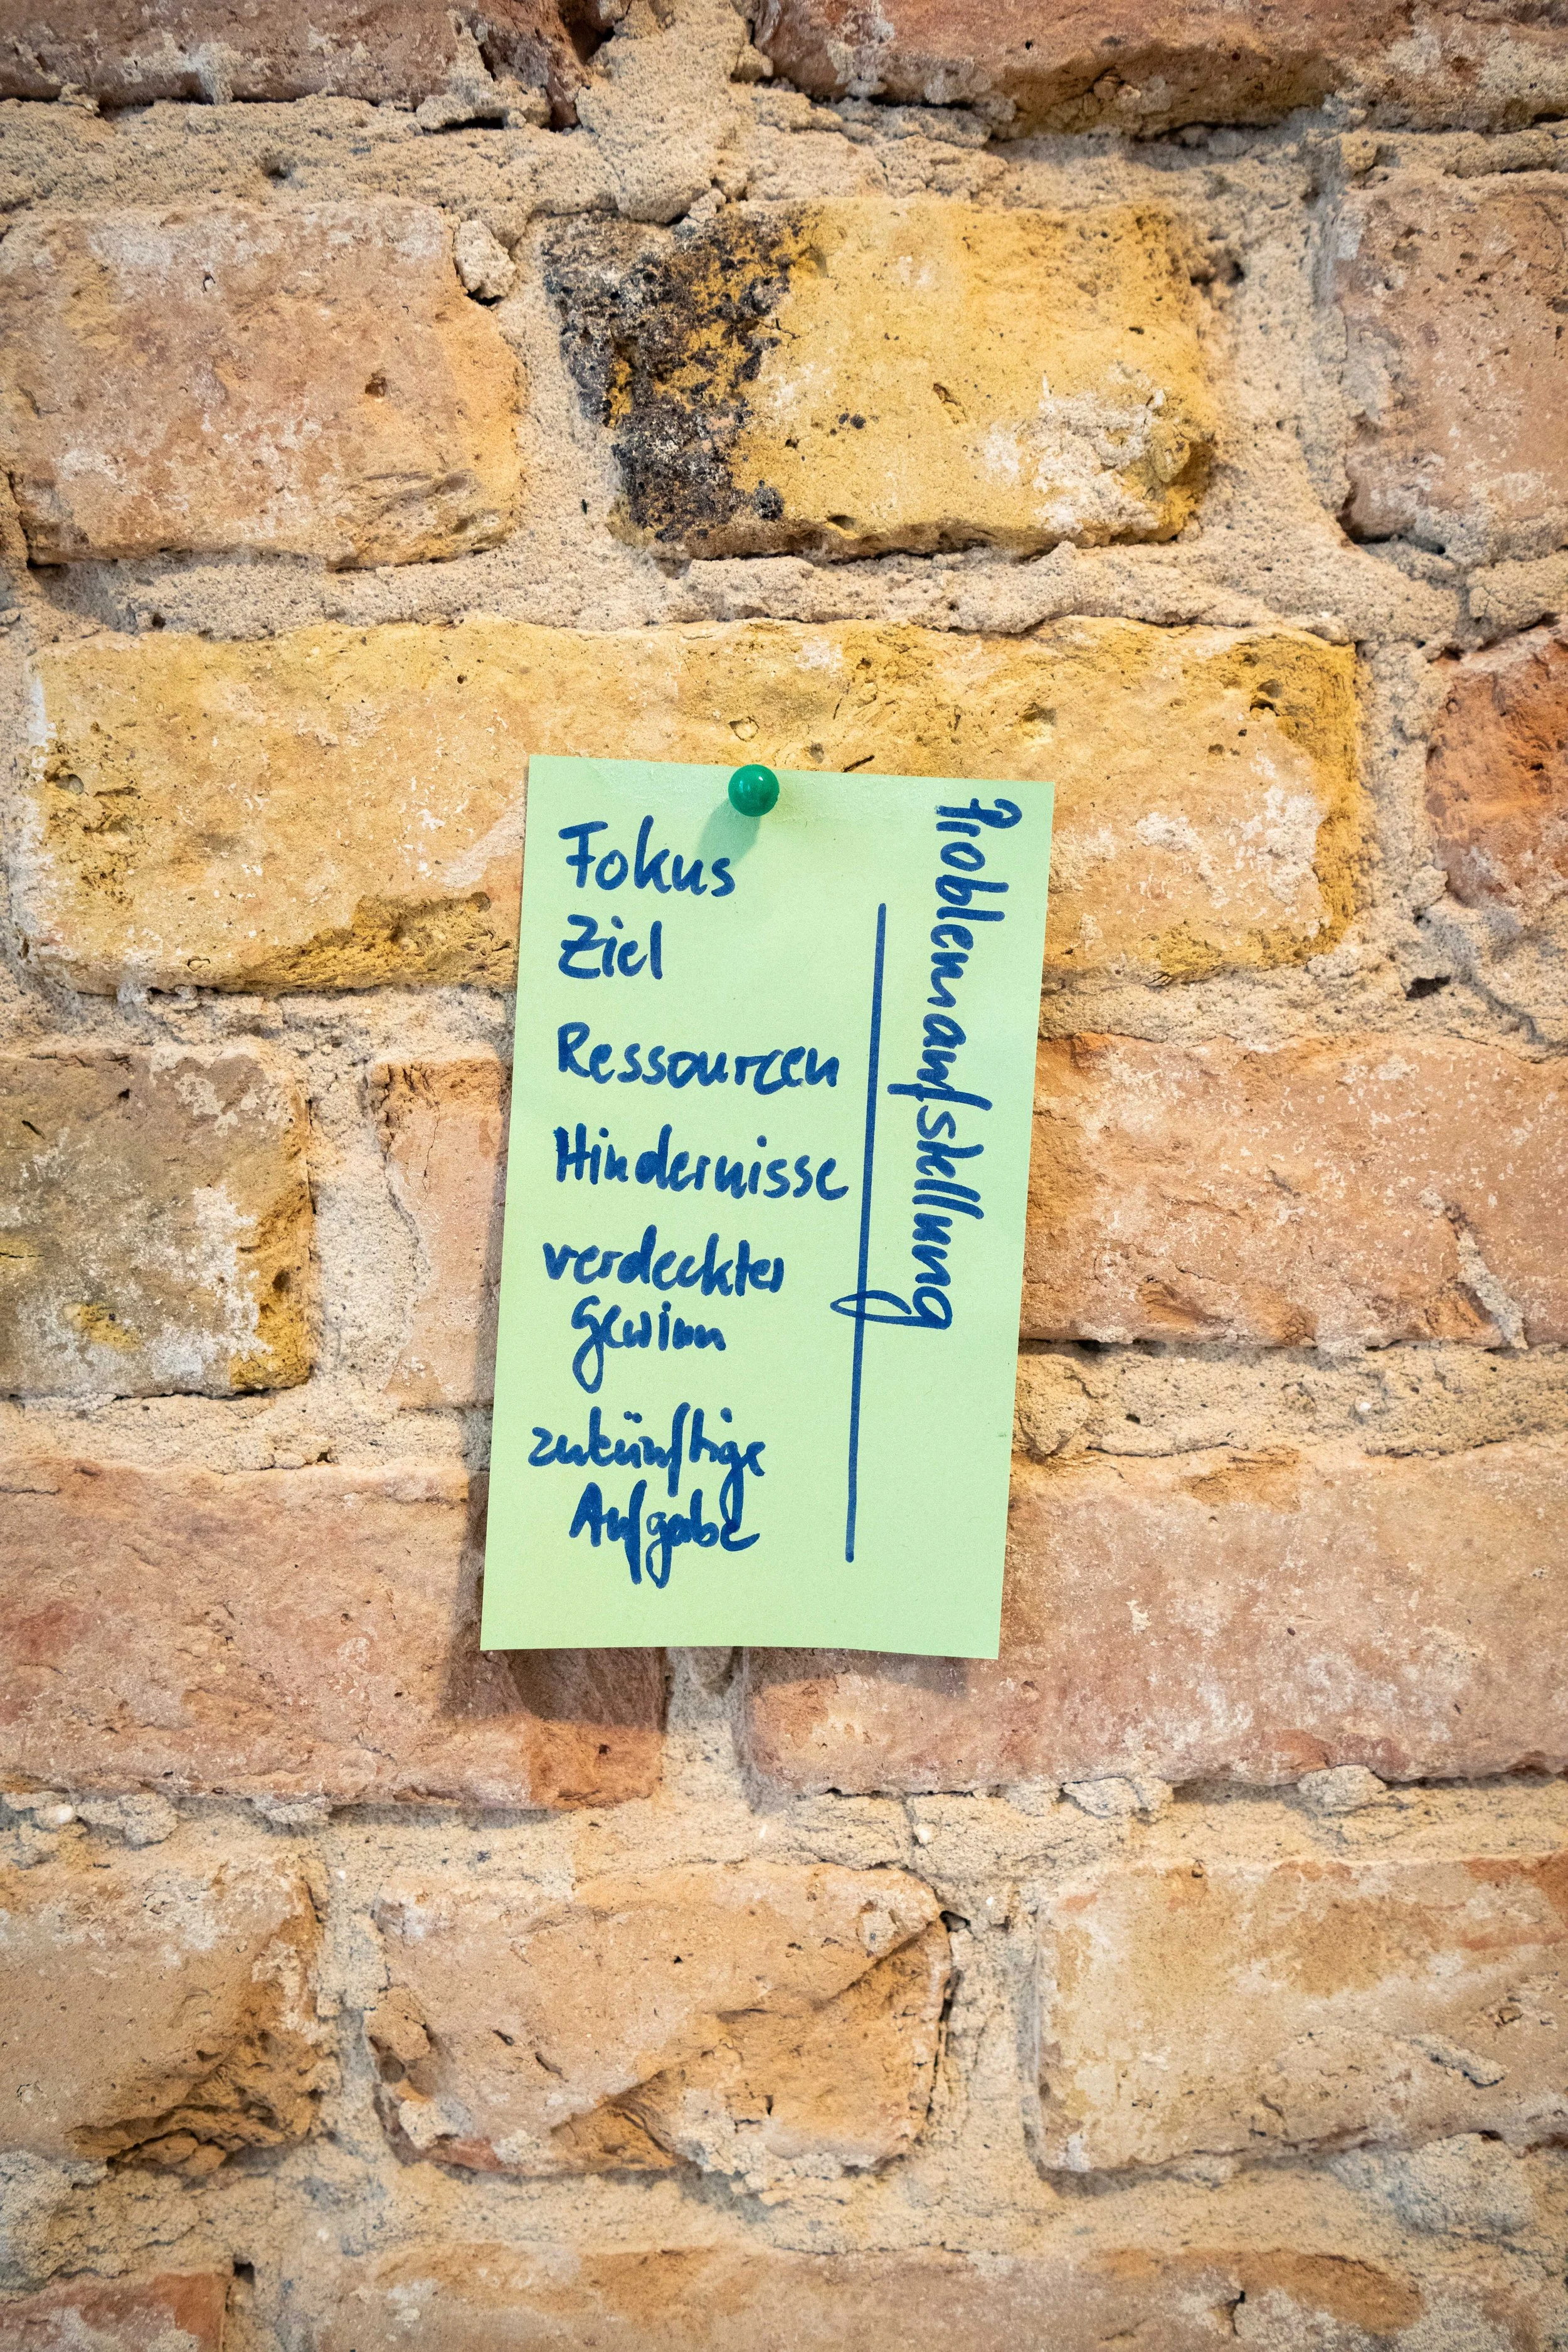 Fokus
Ziel
Ressourcen
Hindernisse
verdeckter
Gewinn
zukünftige
Aufgabe
Problemaufstellung